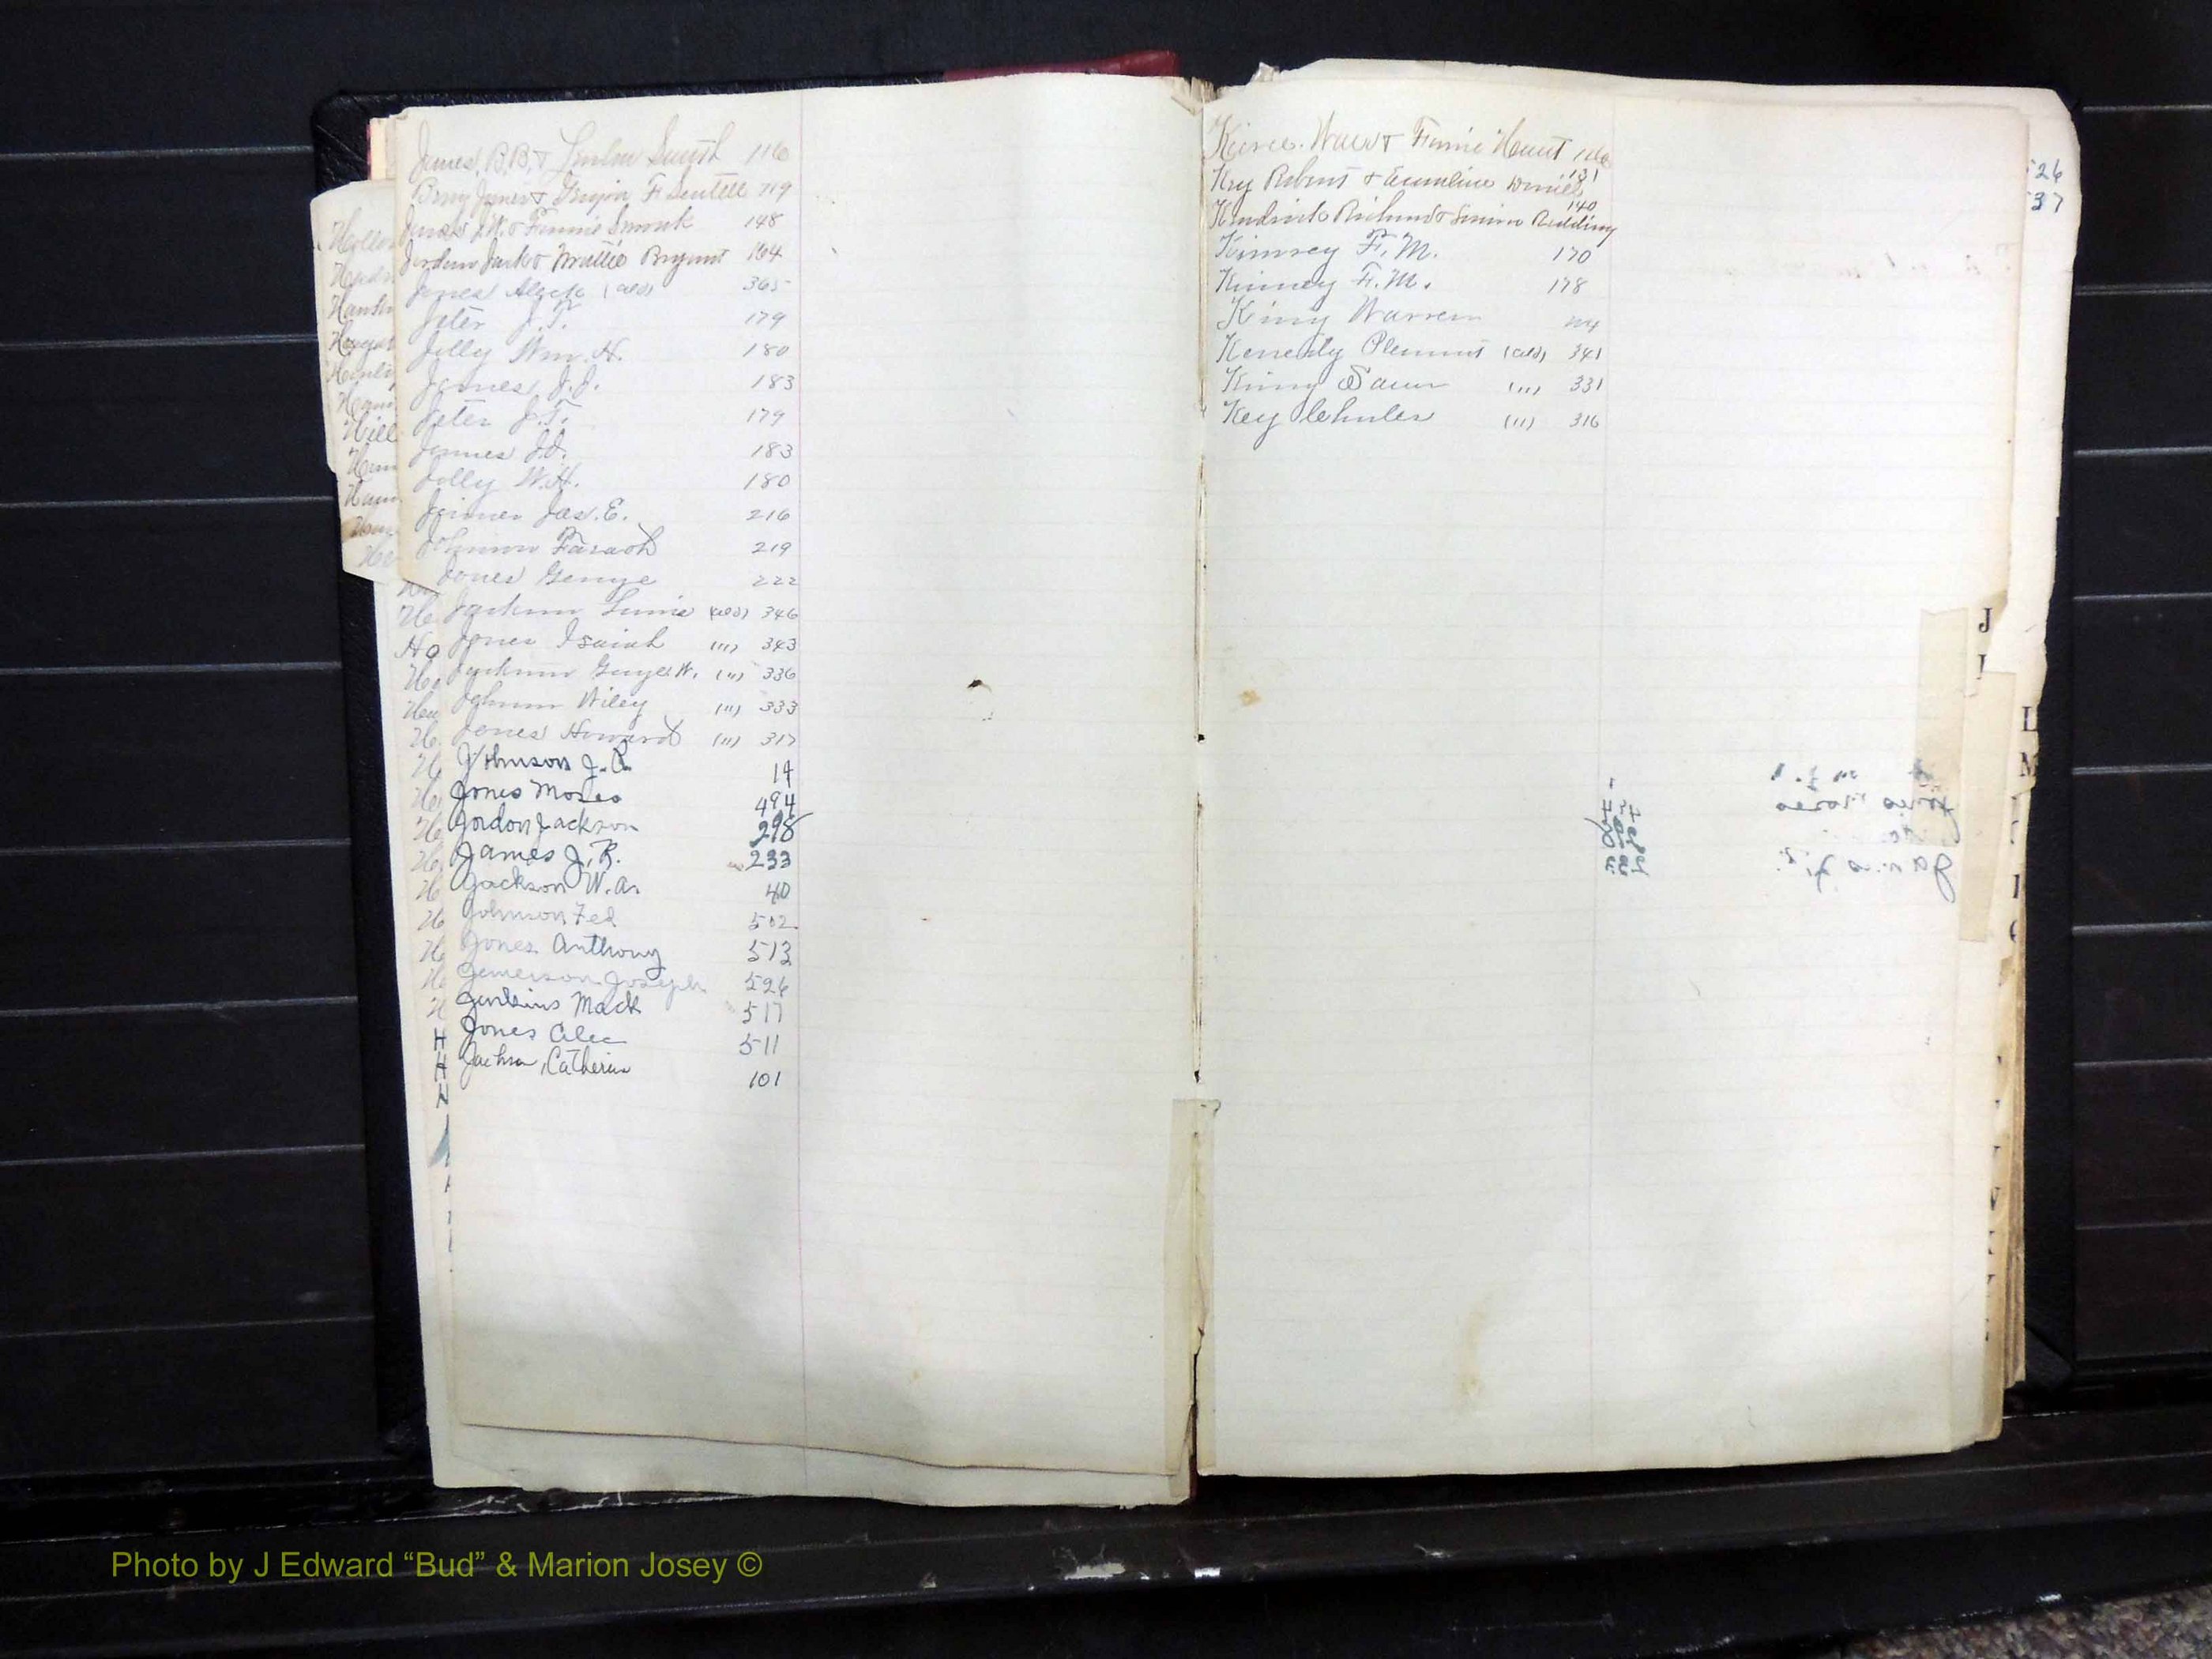 James, B.B. & Smith 116
James & F. Sentell 719
J.W. & Fannie Smonk 148
Jordan Jack & Mattie Bryant 164
Jones Aleck (Cold) 365
Jeter J.T. 179
Jolly Wm. H. 180
James J.J. 183
Jeter J.T. 179
James J.J. 183
Jolly W.H. 180
Joiner Jas. E. 216
Johnson Faraoh 219
Jones George 222
Jackson (Cold) 346
Jones Isaiah (") 343
Jackson George W. (") 336
Johnson Wiley (") 333
Jones Howard (") 317
Johnson J.R. 14
Jones Moses 494
Jordon Jackson 298
James J.R. 233
Jackson W.A. 40
Johnson Fed 502
Jones Anthony 513
Jemerson Joseph 526
Jenkins Mack 517
Jones Alec 511
Jackson, Catherine 101
& Fannie
131
Key Robert & Emmline Daniels
140
Kendrick Richard & Redding
Kimsey F.M. 170
Kinney F.M. 178
King Warren
Kenedy (Cold) 341
King Sam (") 331
Key (") 316
26
37
J
L
M
Photo by J Edward “Bud” & Marion Josey ©